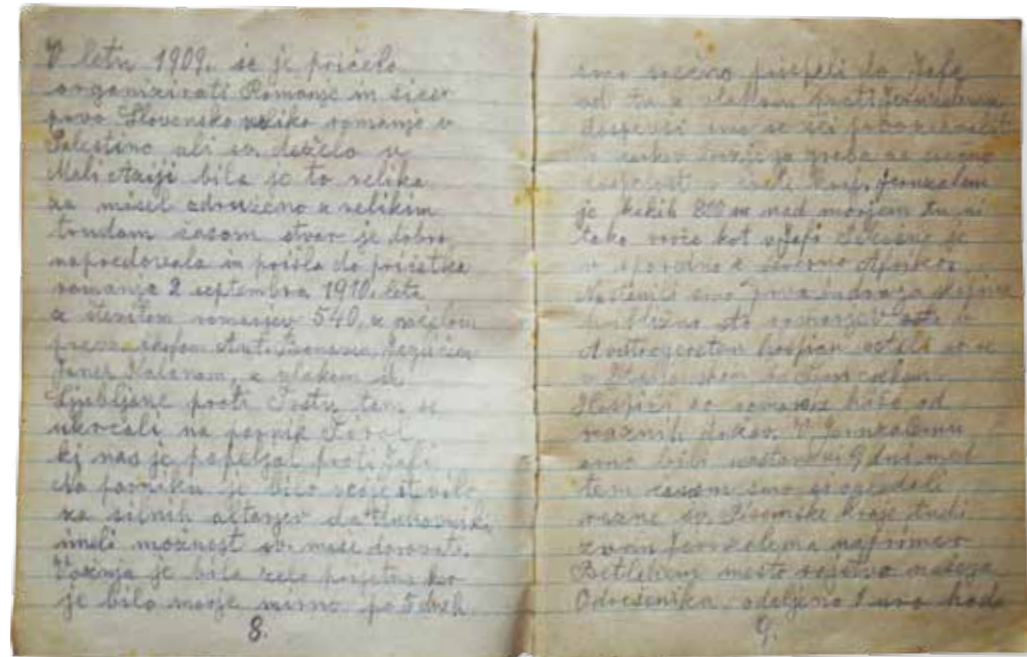 V letu 1909. se je pričelo
organizirati Romanje in sicer
prvo Slovensko veliko romanje v
Palestino ali sv. deželo v
Mali Aziji bila je to velika
za misel združeno z velikim
trudom časom stvar je dobro
napredovala in prišla do pričetka
romanja 2 septembra 1910. leta
z številom romarjev 540, z
Ant. Bonavn. Jegličem
Janez Kalanom, z vlakom iz
Ljubljane proti Trstu, tam se
ukrcali na parnik Tirol
kj nas je popeljal proti Jafi
Na parniku je bilo večje število
za silnih altarjev da Duhovniki
imeli možnost sv. maše darovati.
Vožnja je bila zelo prijetna ker
je bilo morje mirno po 5 dneh
8.
smo srečno prispeli do Jafe
od tu z vlakom proti Jeruzalemu
dospevši smo se šli
v cerkev božjega groba za srečno
v svete kraje. Jeruzalem
je kakih 800 m nad morjem tu ni
tako vroče kot v Jafi
v z severno Afriko.
Nastanili smo
sto romarjev
Avstrogerskem hospicu ostali so se
v
Hospici so romarske hiše od
raznih držav. V Jeruzalemu
smo bili nastanjeni 9 dni med
tem časom smo si ogledali
razne sv. Pisemske kraje tudi
zvun Jeruzalema najprimer
Betlehem mesto rojstva našega
Odrešenika, odaljeno 1 uro hoda
9.